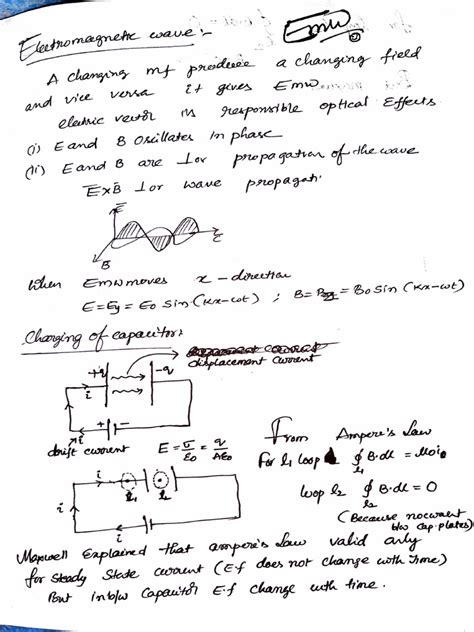 Electromagnetic wave :-
Emw
A changing mf produce a changing field
and vice versa it gives Emw
electric vector is responsible optical Effects
(i) E and B Oscillates in phase
(ii) E and B are ⊥or propagation of the wave
E̅×B̅ ⊥or wave propagati
E
B
C
When Emw moves x - direction
E = Ey = E0 Sin (kx-ωt) ; B = = B0 Sin (kx-ωt)
Charging of capacitor:
displacement current
+q -q
i
+ -
drift current E = σ/ε0 = q/Aε0
From Ampere's Law
For l1 loop ∮l1 B·dl = μ0i0
loop l2 ∮l2 B·dl = 0
(Because no current
b/w cap. plates)
i l1 l2
i
Maxwell Explained that ampere's Law valid only
for Steady State current (E.f does not change with time)
But in b/w Capacitor E.f change with time.